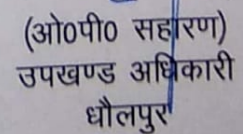 (ओ0पी0 सहारण)
उपखण्ड अधिकारी
धौलपुर